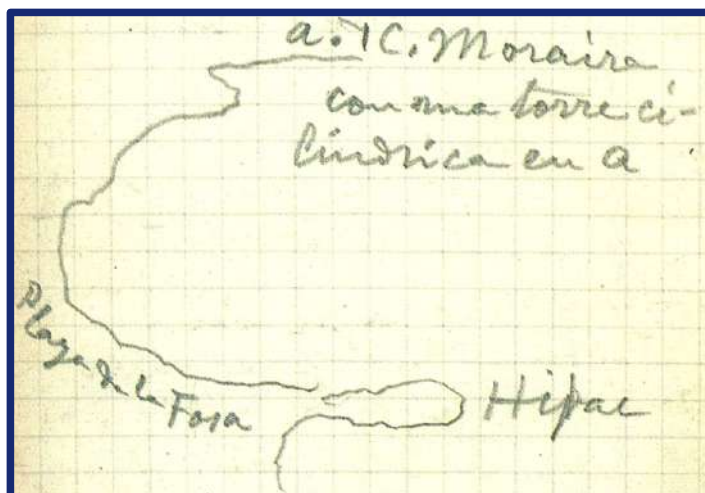 a. C. Moraira
con una torre ci-
líndrica en a
Playa de la Fosa
Hifac